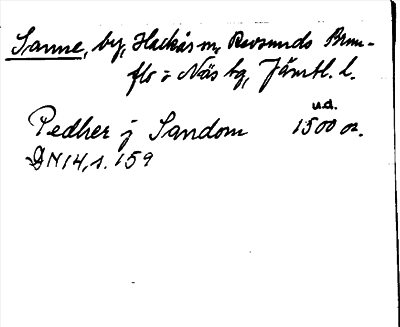 Sanne, by, Hackås sn, Revsunds Brun-
flo o Näs tg, Jämtl. l.
u.d.
Pedher j Sandom 1500 or.
DN 14, s. 159